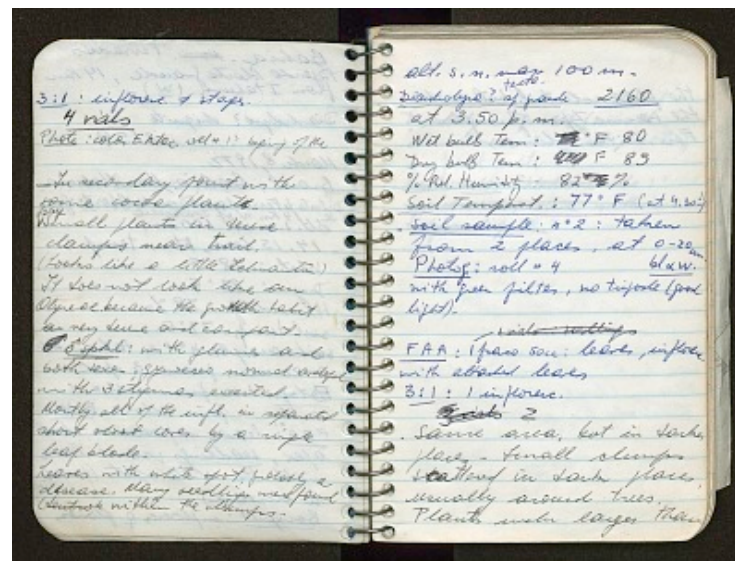 3:1 : inflorenc & stages.
4 vials
Photo : color roll # 1: of the
In secondary forest with
some cocoa plants.
Small plants in dense
clumps near trail.
(Looks like a little
It does not look like an
Olyreae because the growth habit
is very dense and compact.
Spklt: with glumes and
both sexes;
with 3 stigmas exserted.
Mostly all of the infl. in separated
short cover by a single
leaf blade.
Leaves with white spot, probably a
disease. Many seedlings were found
within the clumps.
alt. s. n. mar 100 m.
2160
at 3.50 p.m.
Wet bulb Tem : °F 80
Dry bulb Tem : F 89
% Rel. Humidity - 82 %
Soil Temperat. : 77° F (at 4.20)
Soil sample : nº 2 : taken
from 2 places, at 0-20 cm
Photog : roll # 4 bl & w.
with green filter, no tripode (good
light).
FAA : leaves, inflore
with attached leaves
3:1 : 1 inflorenc.
2
Same area, but in darker
places. Small clumps
scattered in dark places,
usually around trees.
Plants much larger than